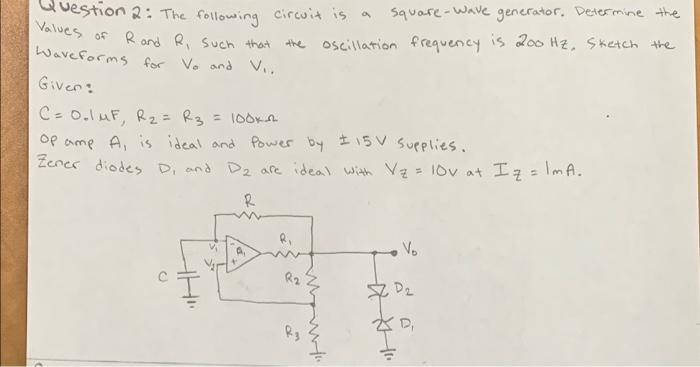 Question 2: The following circuit is a square-wave generator. Determine the
Values of R and R, such that the oscillation frequency is 200 Hz. Sketch the
Waveforms for Vo and V1.
Given:
C = 0.1μF, R2 = R3 = 100KΩ
Op amp A1 is ideal and Power by ±15V Supplies.
Zener diodes D1 and D2 are ideal with Vz = 10V at Iz = 1mA.
R
V1
A1
R1
Vo
V2
C
R2
D2
R3
D1